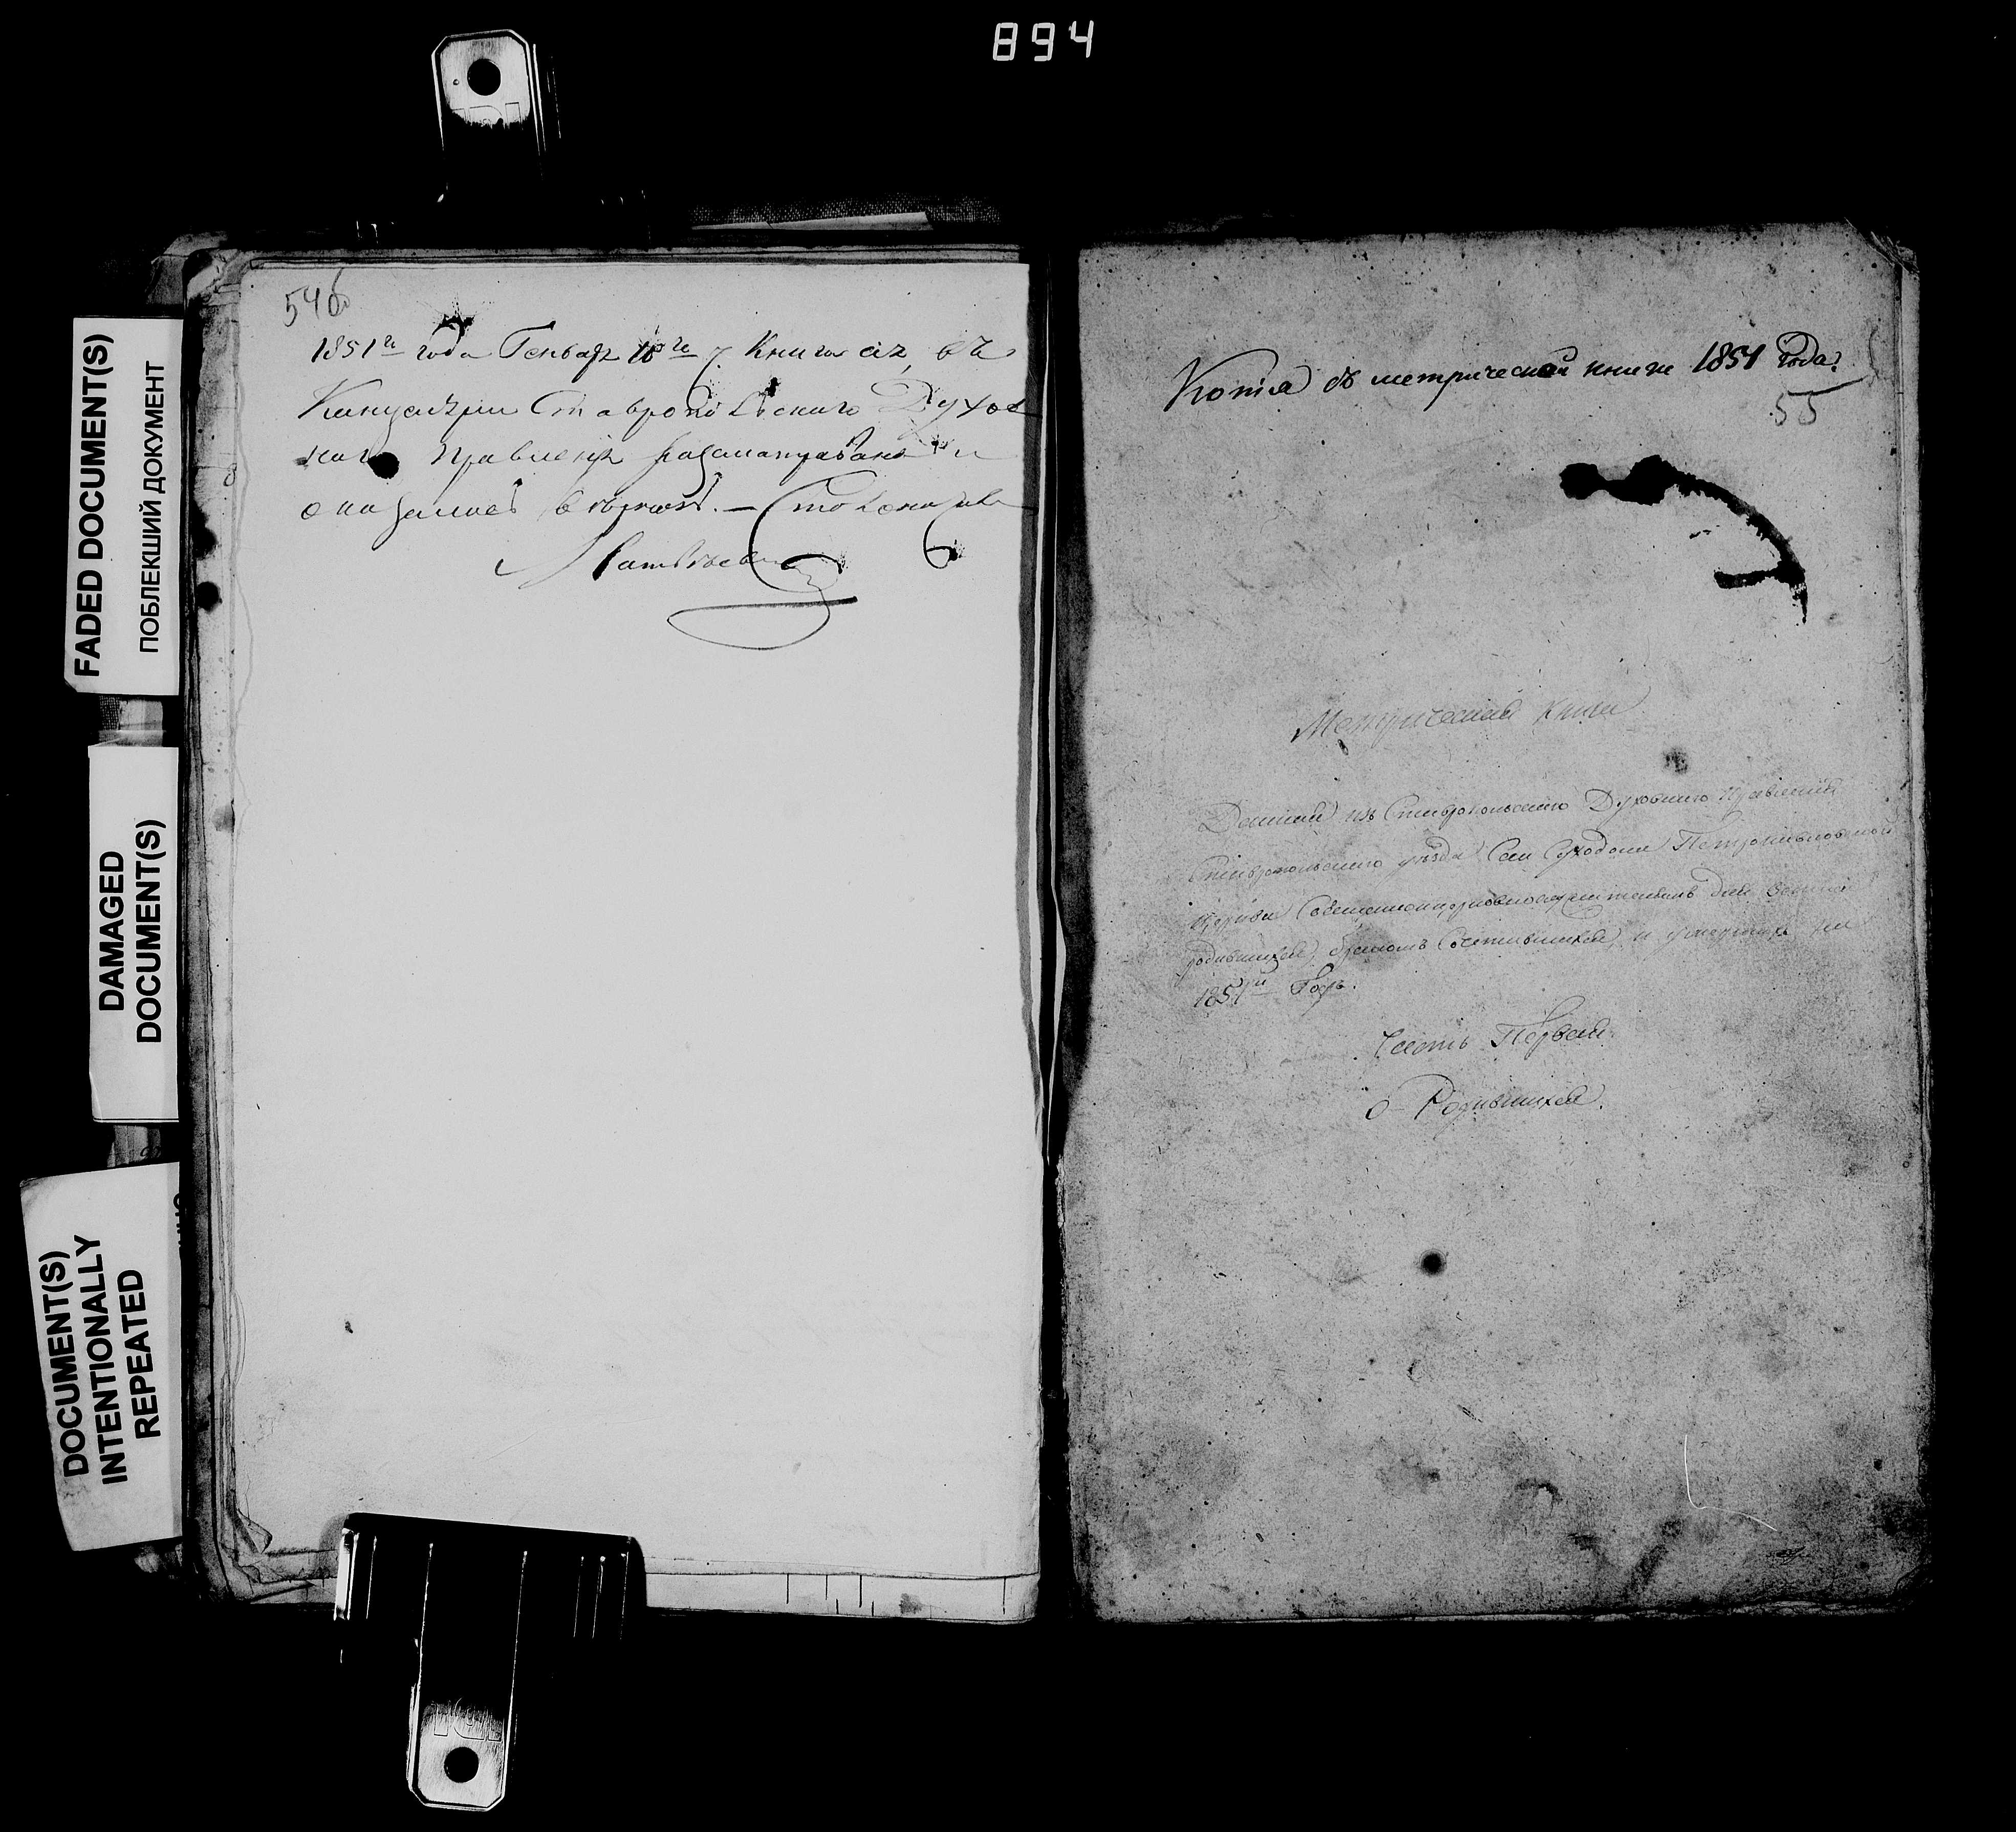 894
FADED DOCUMENT(S)
ПОБЛЕКШИЙ ДОКУМЕНТ
DAMAGED
DOCUMENT(S)
DOCUMENT(S)
INTENTIONALLY
REPEATED
54об
1851го года Генваря книга сія, въ
Канцеляріи Ставропольскаго Духов
наго Правленія разсматривана и
оказалась вѣрною. — Столоначал
Матвѣевъ
Копія съ метрической книги 1851 года.
55
Метрическая Книга
Данная изъ Ставропольскаго Духовнаго Правленія
Ставропольскаго уѣзда Села Суходола Петропавловской
Церкви Священноцерковнослужителямъ для записки
родившихся, бракомъ сочетавшихся и умершихъ на
1851й Годъ.
Часть Первая
О Родившихся.